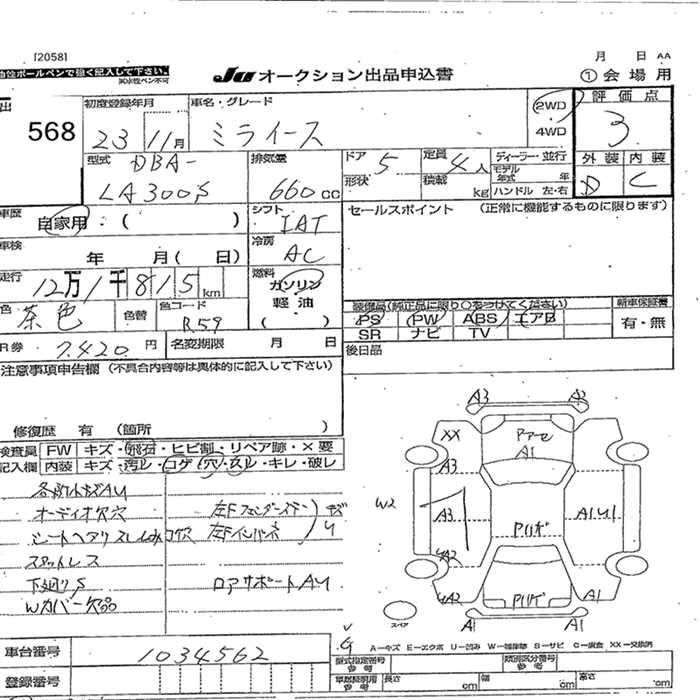 [2058]
月 日 AA
油性ボールペンで強く記入して下さい。
ⒿU オークション出品申込書
①会場用
出
568
初度登録年月
車名・グレード
23 11月
ミライース
2WD
4WD
評価点
3
型式
DBA-
LA300S
排気量
660 CC
ドア 5
形状
定員 4人
積載 kg
ディーラー・並行
モデル年式 年
ハンドル 左・右
外装 内装
D C
車歴
自家用・( )
シフト
IAT
セールスポイント (正常に機能するものに限ります)
車検
年 月( 日)
冷房
AC
走行
12万1千815km
燃料
ガソリン
軽油
( )
色
茶色
色替
色コード
R59
装備品(純正品に限り○をつけてください)
新車保証書
PS PW ABS エアB
SR ナビ TV
有・無
R券 7.420 円
名変期限 月 日
後日品
注意事項申告欄 (不具合内容等は具体的に記入して下さい)
修復歴 有 (箇所 )
検査員記入欄
FW キズ・飛石・ヒビ割・リペア跡・×要
内装 キズ・汚レ・コゲ・穴・スレ・キレ・破レ
各所小キズAU
オーディオ欠穴
シートヘタリスレ
コゲ穴
スタットレス
下廻りS
Wカバー欠品
ロアサポートAU
A3 A3
XX
A1
A3
W2
A3
A1U1
A2
A2
A1
A1 A1
スペア
A-キズ E-エクボ U-凹み W-補修跡 S-サビ C-腐食 XX-交換済
車台番号
1034562
型式指定番号 参考
類別区分番号 参考
登録番号
車庫証明用 参考 長さ cm 幅 cm 高さ cm